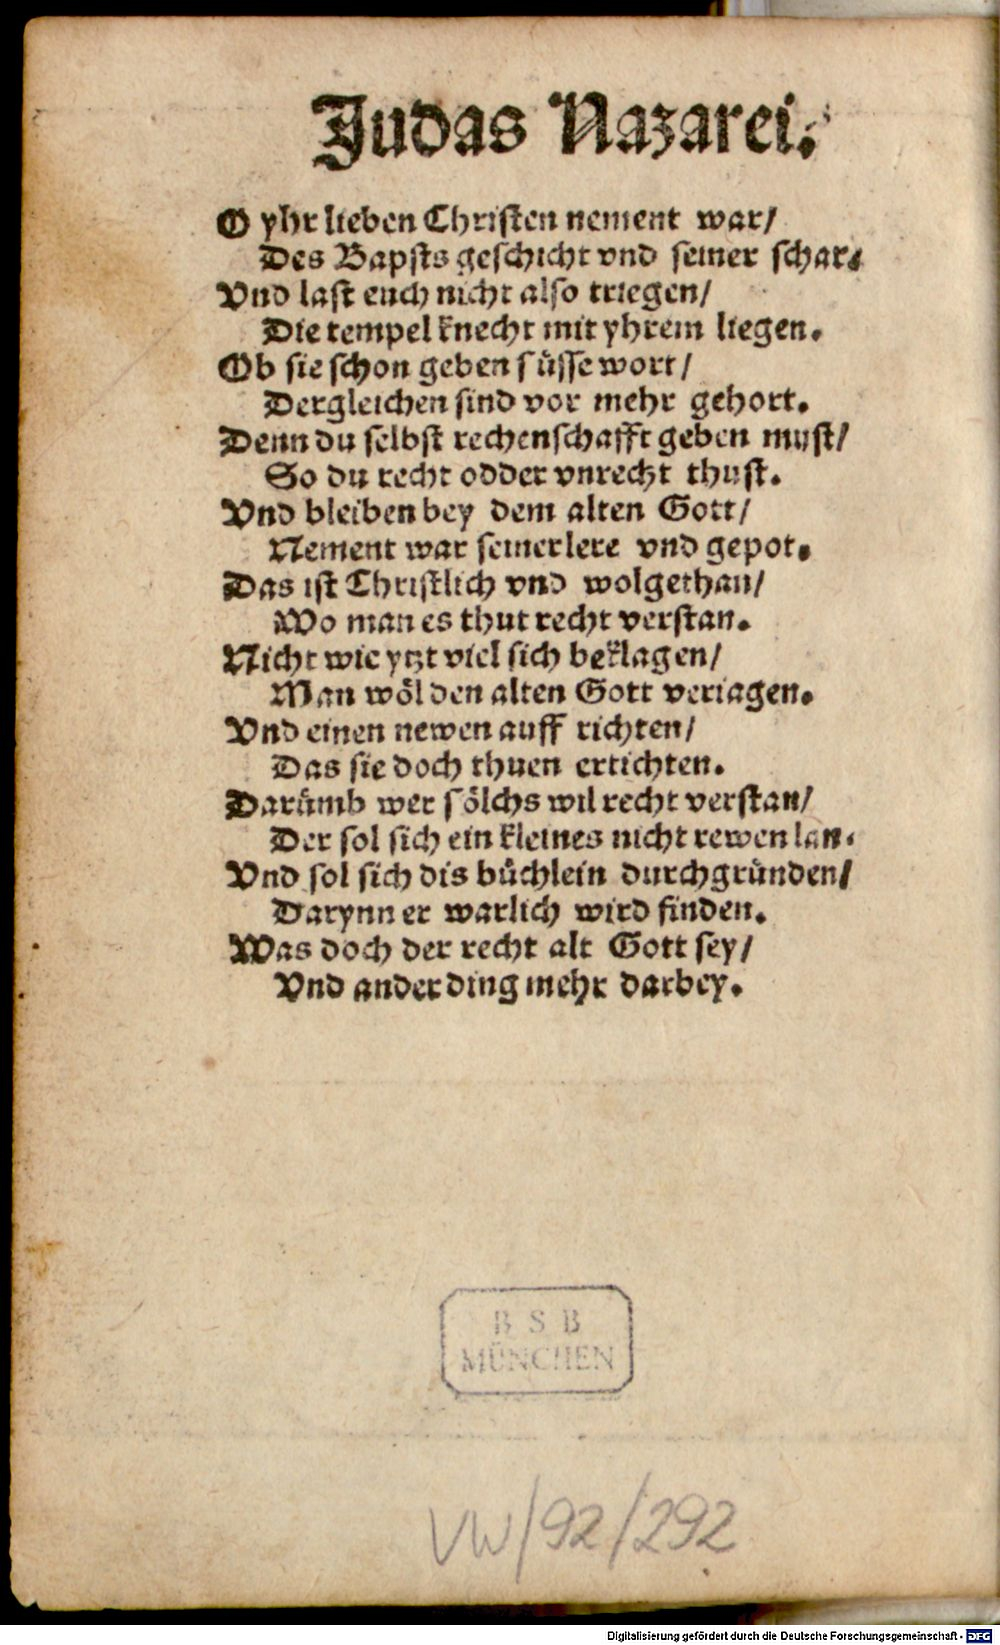 Judas Nazarei.
O yhr lieben Christen nement war/
Des Bapsts geschicht vnd seiner schar.
Vnd last euch nicht also triegen/
Die tempel knecht mit yhrem liegen.
Ob sie schon geben süsse wort/
Dergleichen sind vor mehr gehort.
Denn du selbst rechenschafft geben must/
So du recht odder vnrecht thust.
Vnd bleiben bey dem alten Gott/
Nement war seiner lere vnd gepot.
Das ist Christlich vnd wolgethan/
Wo man es thut recht verstan.
Nicht wie ytzt viel sich beklagen/
Man wöl den alten Gott veriagen.
Vnd einen newen auff richten/
Das sie doch thuen ertichten.
Darümb wer sölchs wil recht verstan/
Der sol sich ein kleines nicht rewen lan.
Vnd sol sich dis büchlein durchgründen/
Darynn er warlich wird finden.
Was doch der recht alt Gott sey/
Vnd ander ding mehr darbey.
B S B
MÜNCHEN
VW/92/292
Digitalisierung gefördert durch die Deutsche Forschungsgemeinschaft - DFG